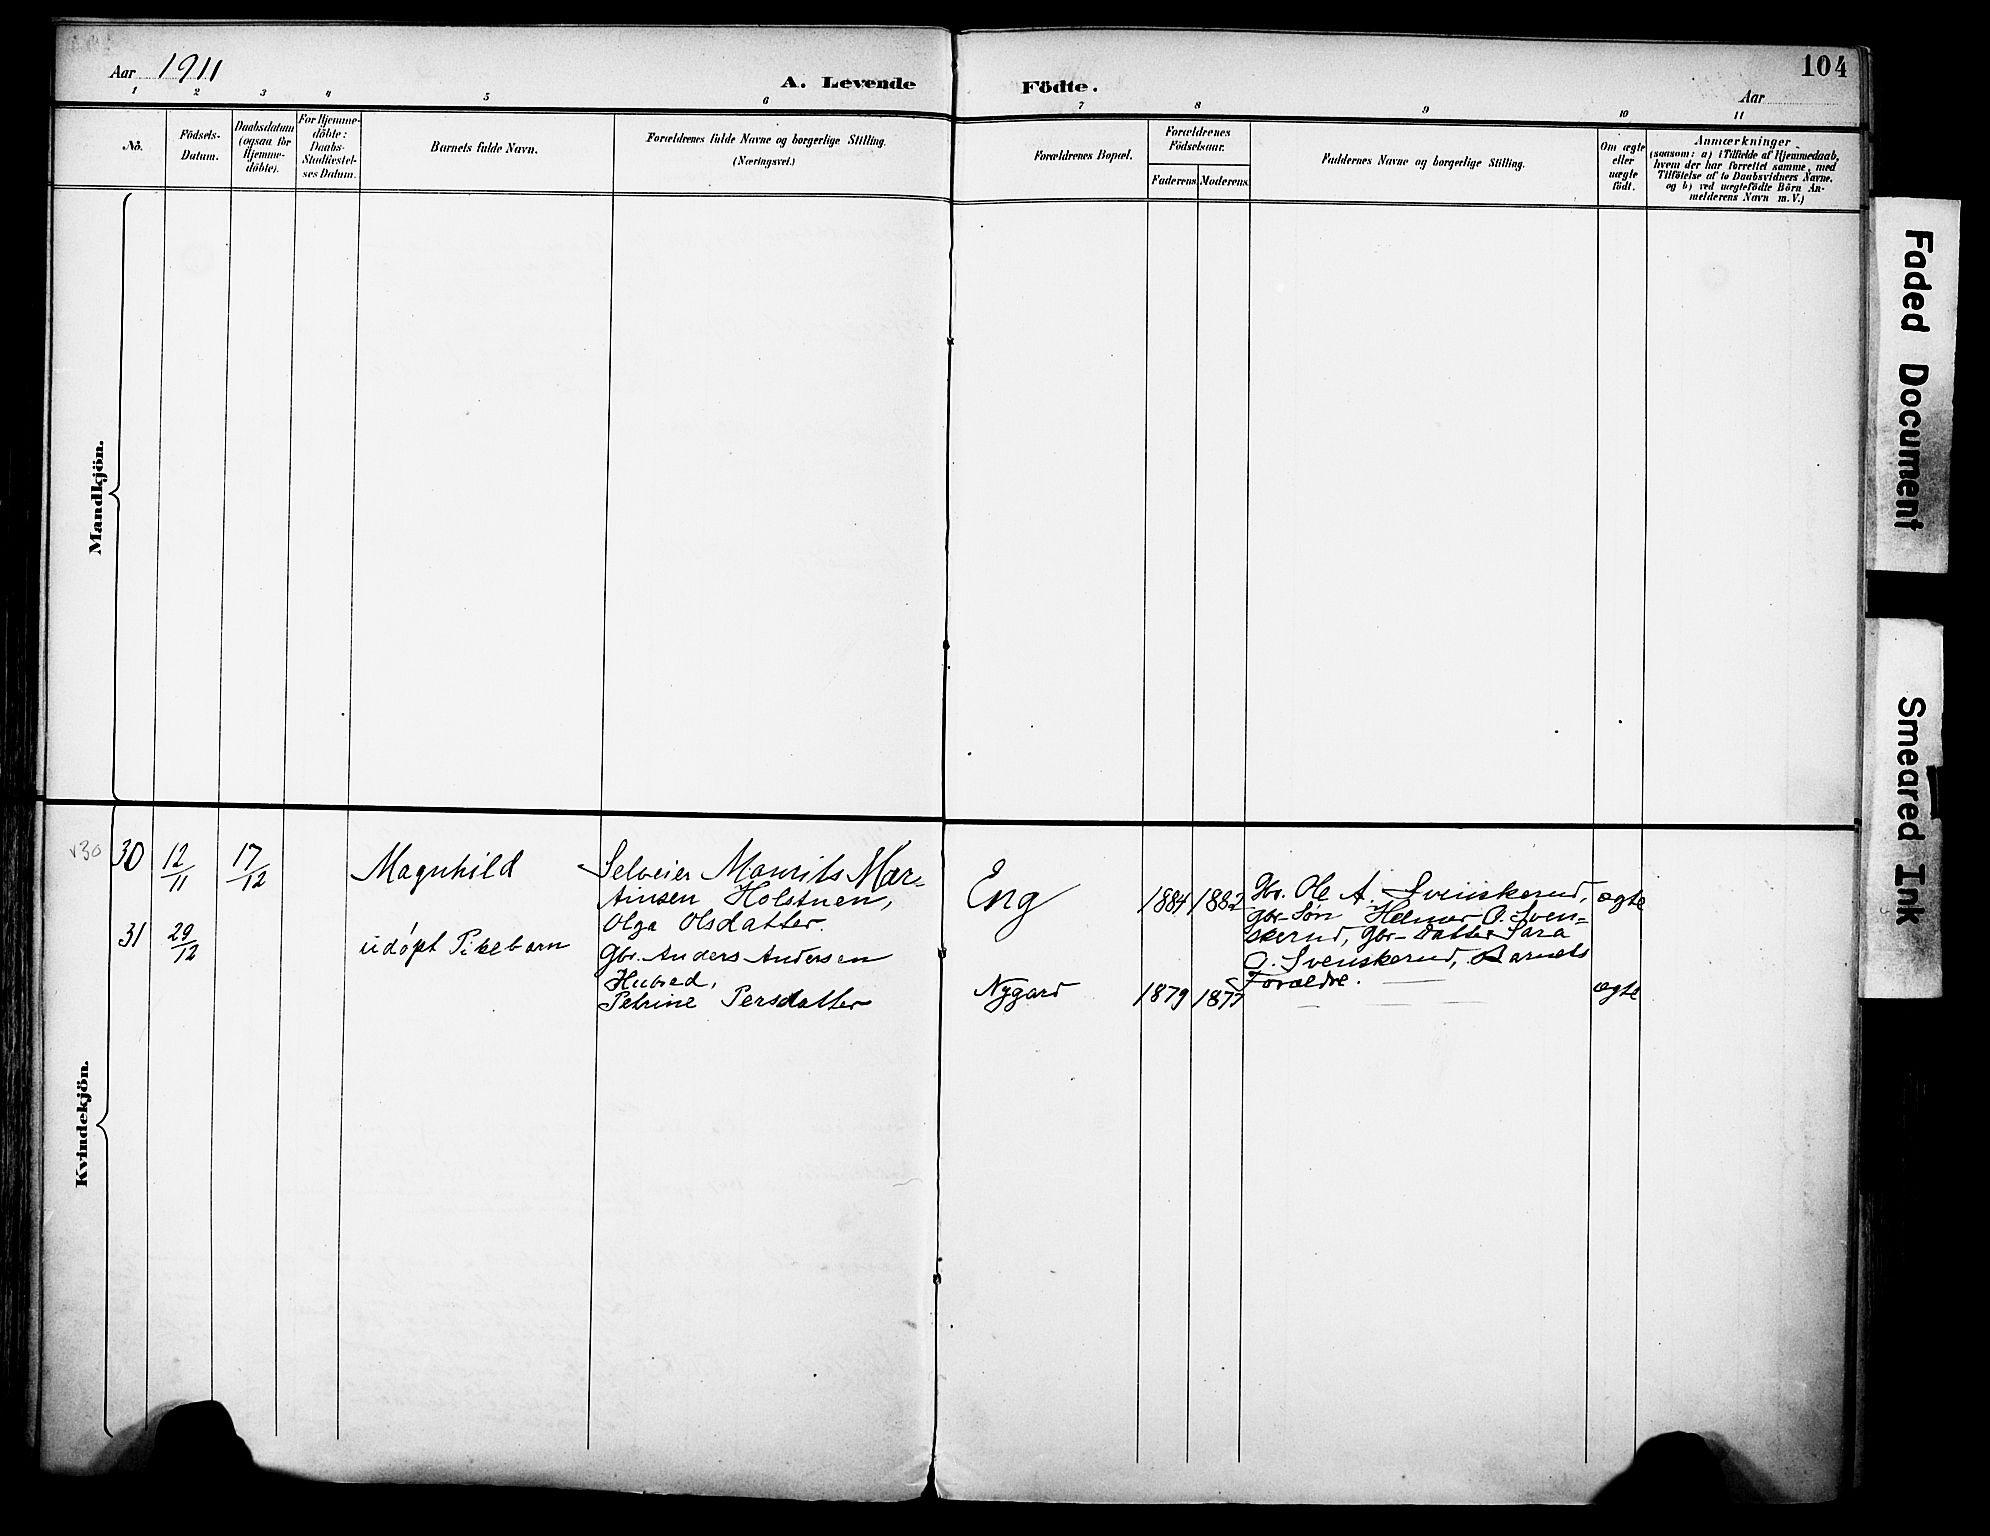 104
Aar 1911
A. Levende Födte.
Aar
1 2 3 4 5 6 7 8 9 10 11
No.
Födsels-
Datum.
Daabsdatum
(ogsaa for
Hjemme-
döbte).
For Hjemme-
döbte:
Daabs-
Stadfæstel-
ses Datum.
Barnets fulde Navn.
Forældrenes fulde Navne og borgerlige Stilling.
(Næringsvei.)
Forældrenes Bopæl.
Forældrenes
Födselsaar.
Faderens
Moderens
Faddernes Navne og borgerlige Stilling.
Om ægte
eller
uægte
födt.
Anmærkninger
(saasom: a) i Tilfælde af Hjemmedaab,
hvem der har forrettet samme, med
Tilföielse af to Daabsvidners Navne.
og b) ved uægtefödte Börn An-
melderens Navn m. V.)
Mandkjön.
Kvindekjön.
v30
30
12/11
17/12
Magnhild
Selveier Maurits Mar-
tinsen Holstuen,
Olga Olsdatter.
Eng
1884
1882
Gbr. Ole A. Svenskerud,
gbr-søn Helmer O. Sven-
skerud, gbr-datter Sara
O. Svenskerud, Barnets
Forældre.
ægte
31
29/12
udøpt Pikebarn
Gbr. Anders Andersen
Hubred,
Petrine Persdatter
Nygard
1879
1877
ægte
Faded Document
Smeared Ink